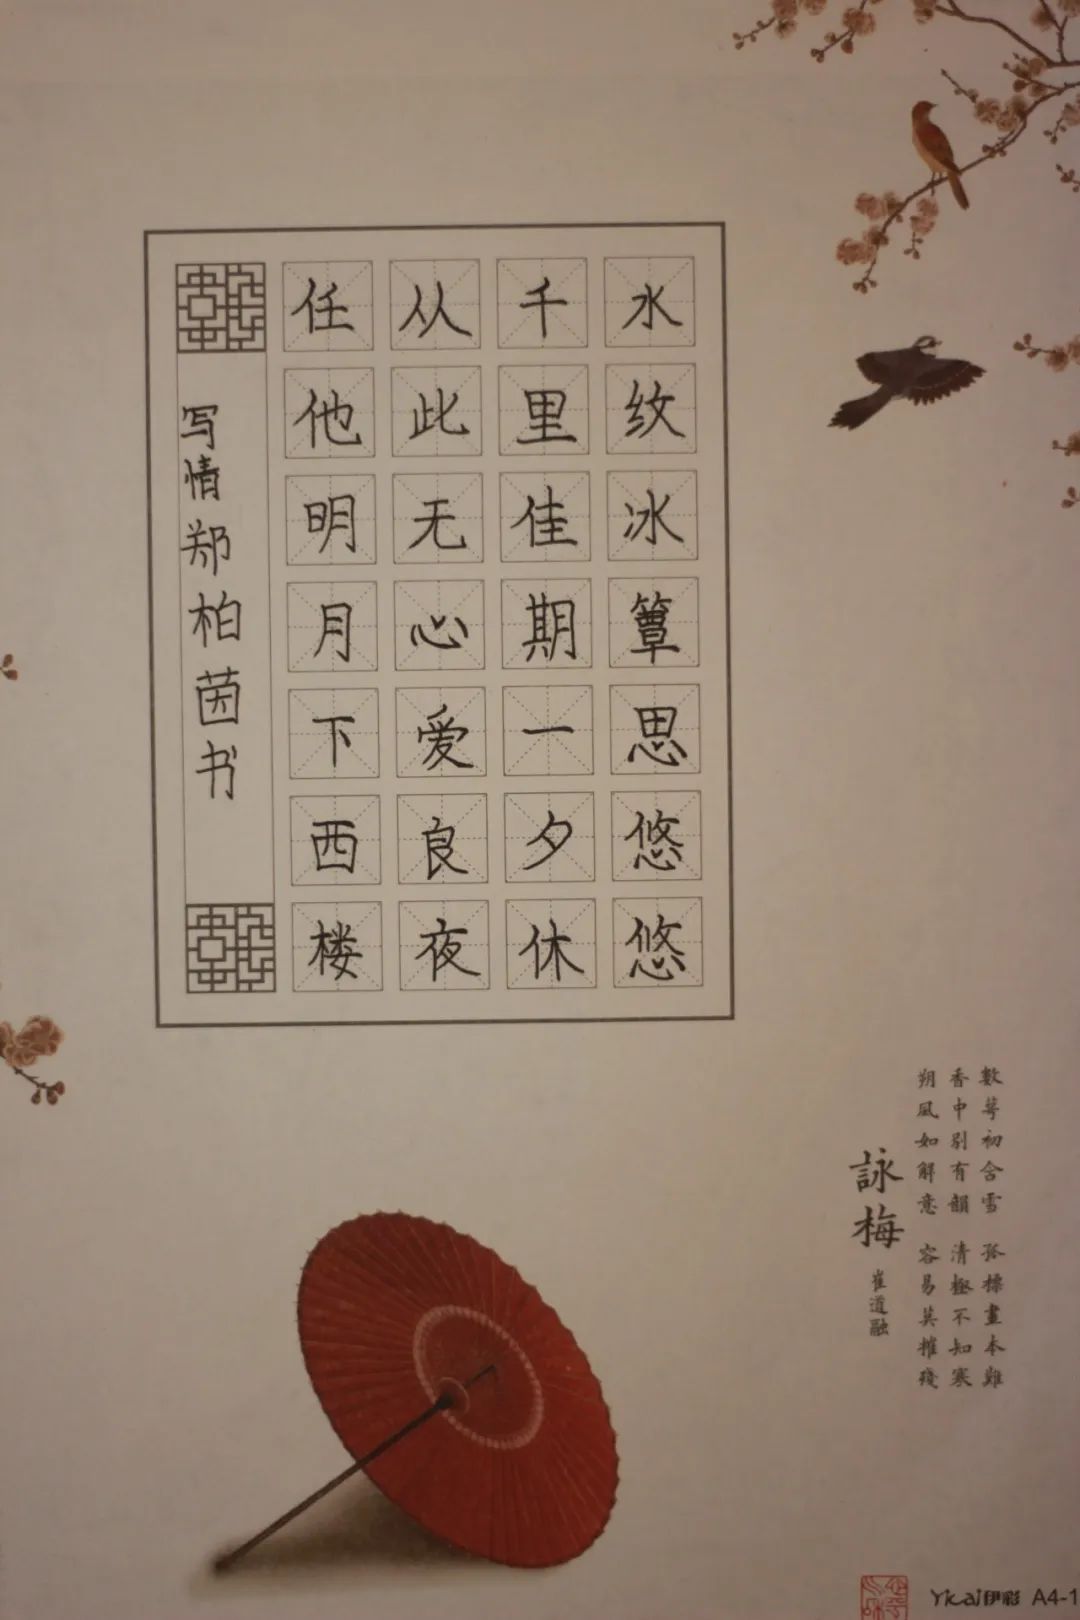 水纹冰簟思悠悠
千里佳期一夕休
从此无心爱良夜
任他明月下西楼
写情郑柏茵书
數萼初含雪 孤標畫本難
香中别有韻 清極不知寒
朔風如解意 容易莫摧殘
詠梅 崔道融
Yicai伊彩 A4-1